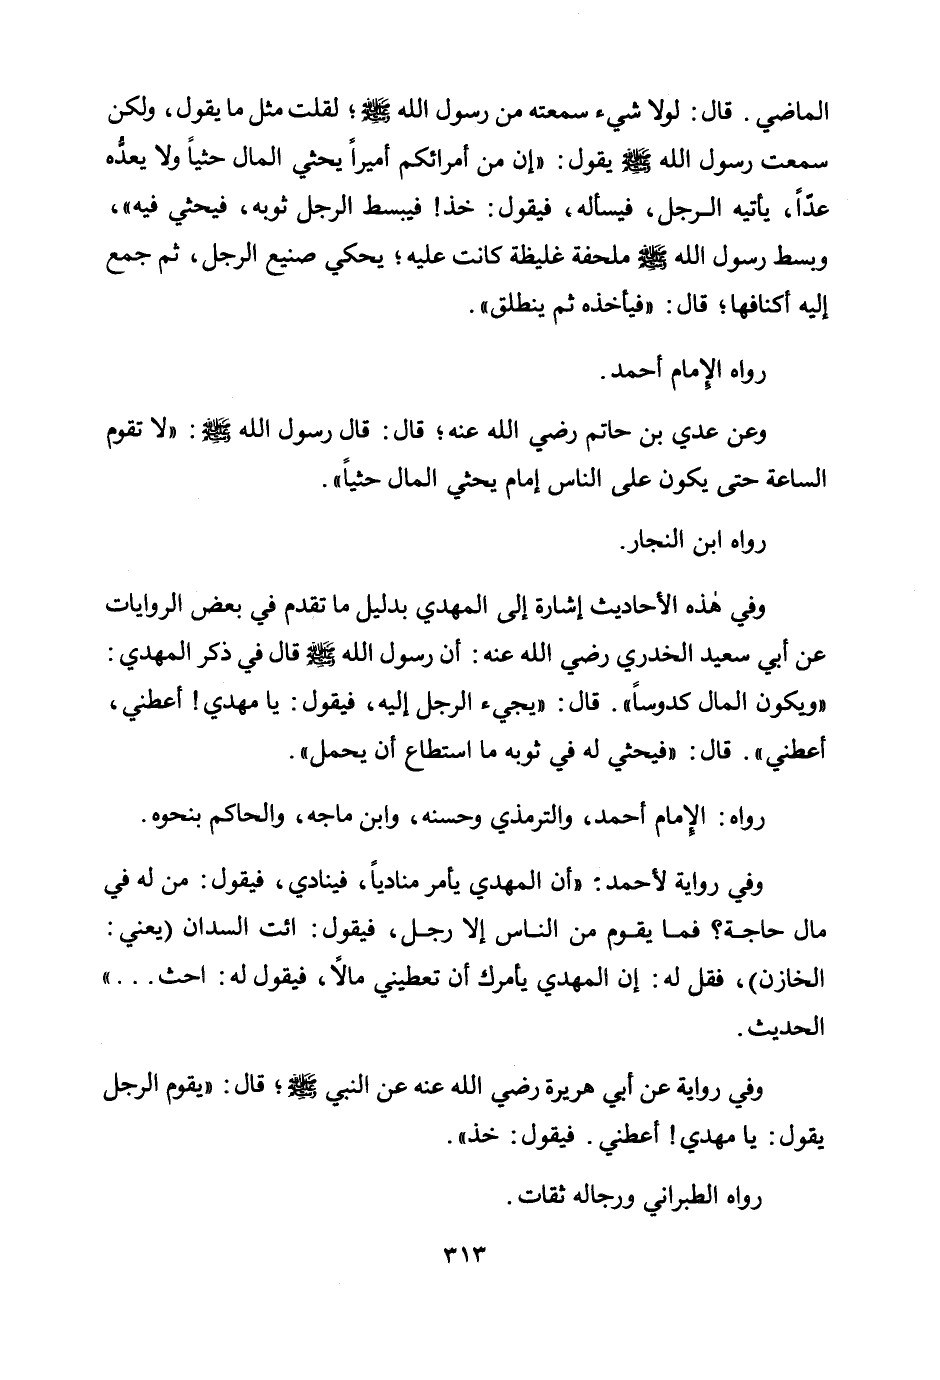 الماضي. قال: لولا شيء سمعته من رسول الله ﷺ؛ لقلت مثل ما يقول، ولكن
سمعت رسول الله ﷺ يقول: «إن من أمرائكم أميراً يحثي المال حثياً ولا يعدُّه
عدّاً، يأتيه الـرجل، فيسأله، فيقول: خذ! فيبسط الرجل ثوبه، فيحثي فيه»،
وبسط رسول الله ﷺ ملحفة غليظة كانت عليه؛ يحكي صنيع الرجل، ثم جمع
إليه أكنافها؛ قال: «فيأخذه ثم ينطلق».
رواه الإمام أحمد.
وعن عدي بن حاتم رضي الله عنه؛ قال: قال رسول الله ﷺ: «لا تقوم
الساعة حتى يكون على الناس إمام يحثي المال حثياً».
رواه ابن النجار.
وفي هٰذه الأحاديث إشارة إلى المهدي بدليل ما تقدم في بعض الروايات
عن أبي سعيد الخدري رضي الله عنه: أن رسول الله ﷺ قال في ذكر المهدي:
«ويكون المال كدوساً». قال: «يجيء الرجل إليه، فيقول: يا مهدي! أعطني،
أعطني». قال: «فيحثي له في ثوبه ما استطاع أن يحمل».
رواه: الإمام أحمد، والترمذي وحسنه، وابن ماجه، والحاكم بنحوه.
وفي رواية لأحمد: «أن المهدي يأمر منادياً، فينادي، فيقول: من له في
مال حاجـة؟ فمـا يقـوم من النـاس إلا رجـل، فيقول: ائت السدان (يعني:
الخازن)، فقل له: إن المهدي يأمرك أن تعطيني مالاً، فيقول له: احث...»
الحديث.
وفي رواية عن أبي هريرة رضي الله عنه عن النبي ﷺ؛ قال: «يقوم الرجل
يقول: يا مهدي! أعطني. فيقول: خذ».
رواه الطبراني ورجاله ثقات.
٣١٣